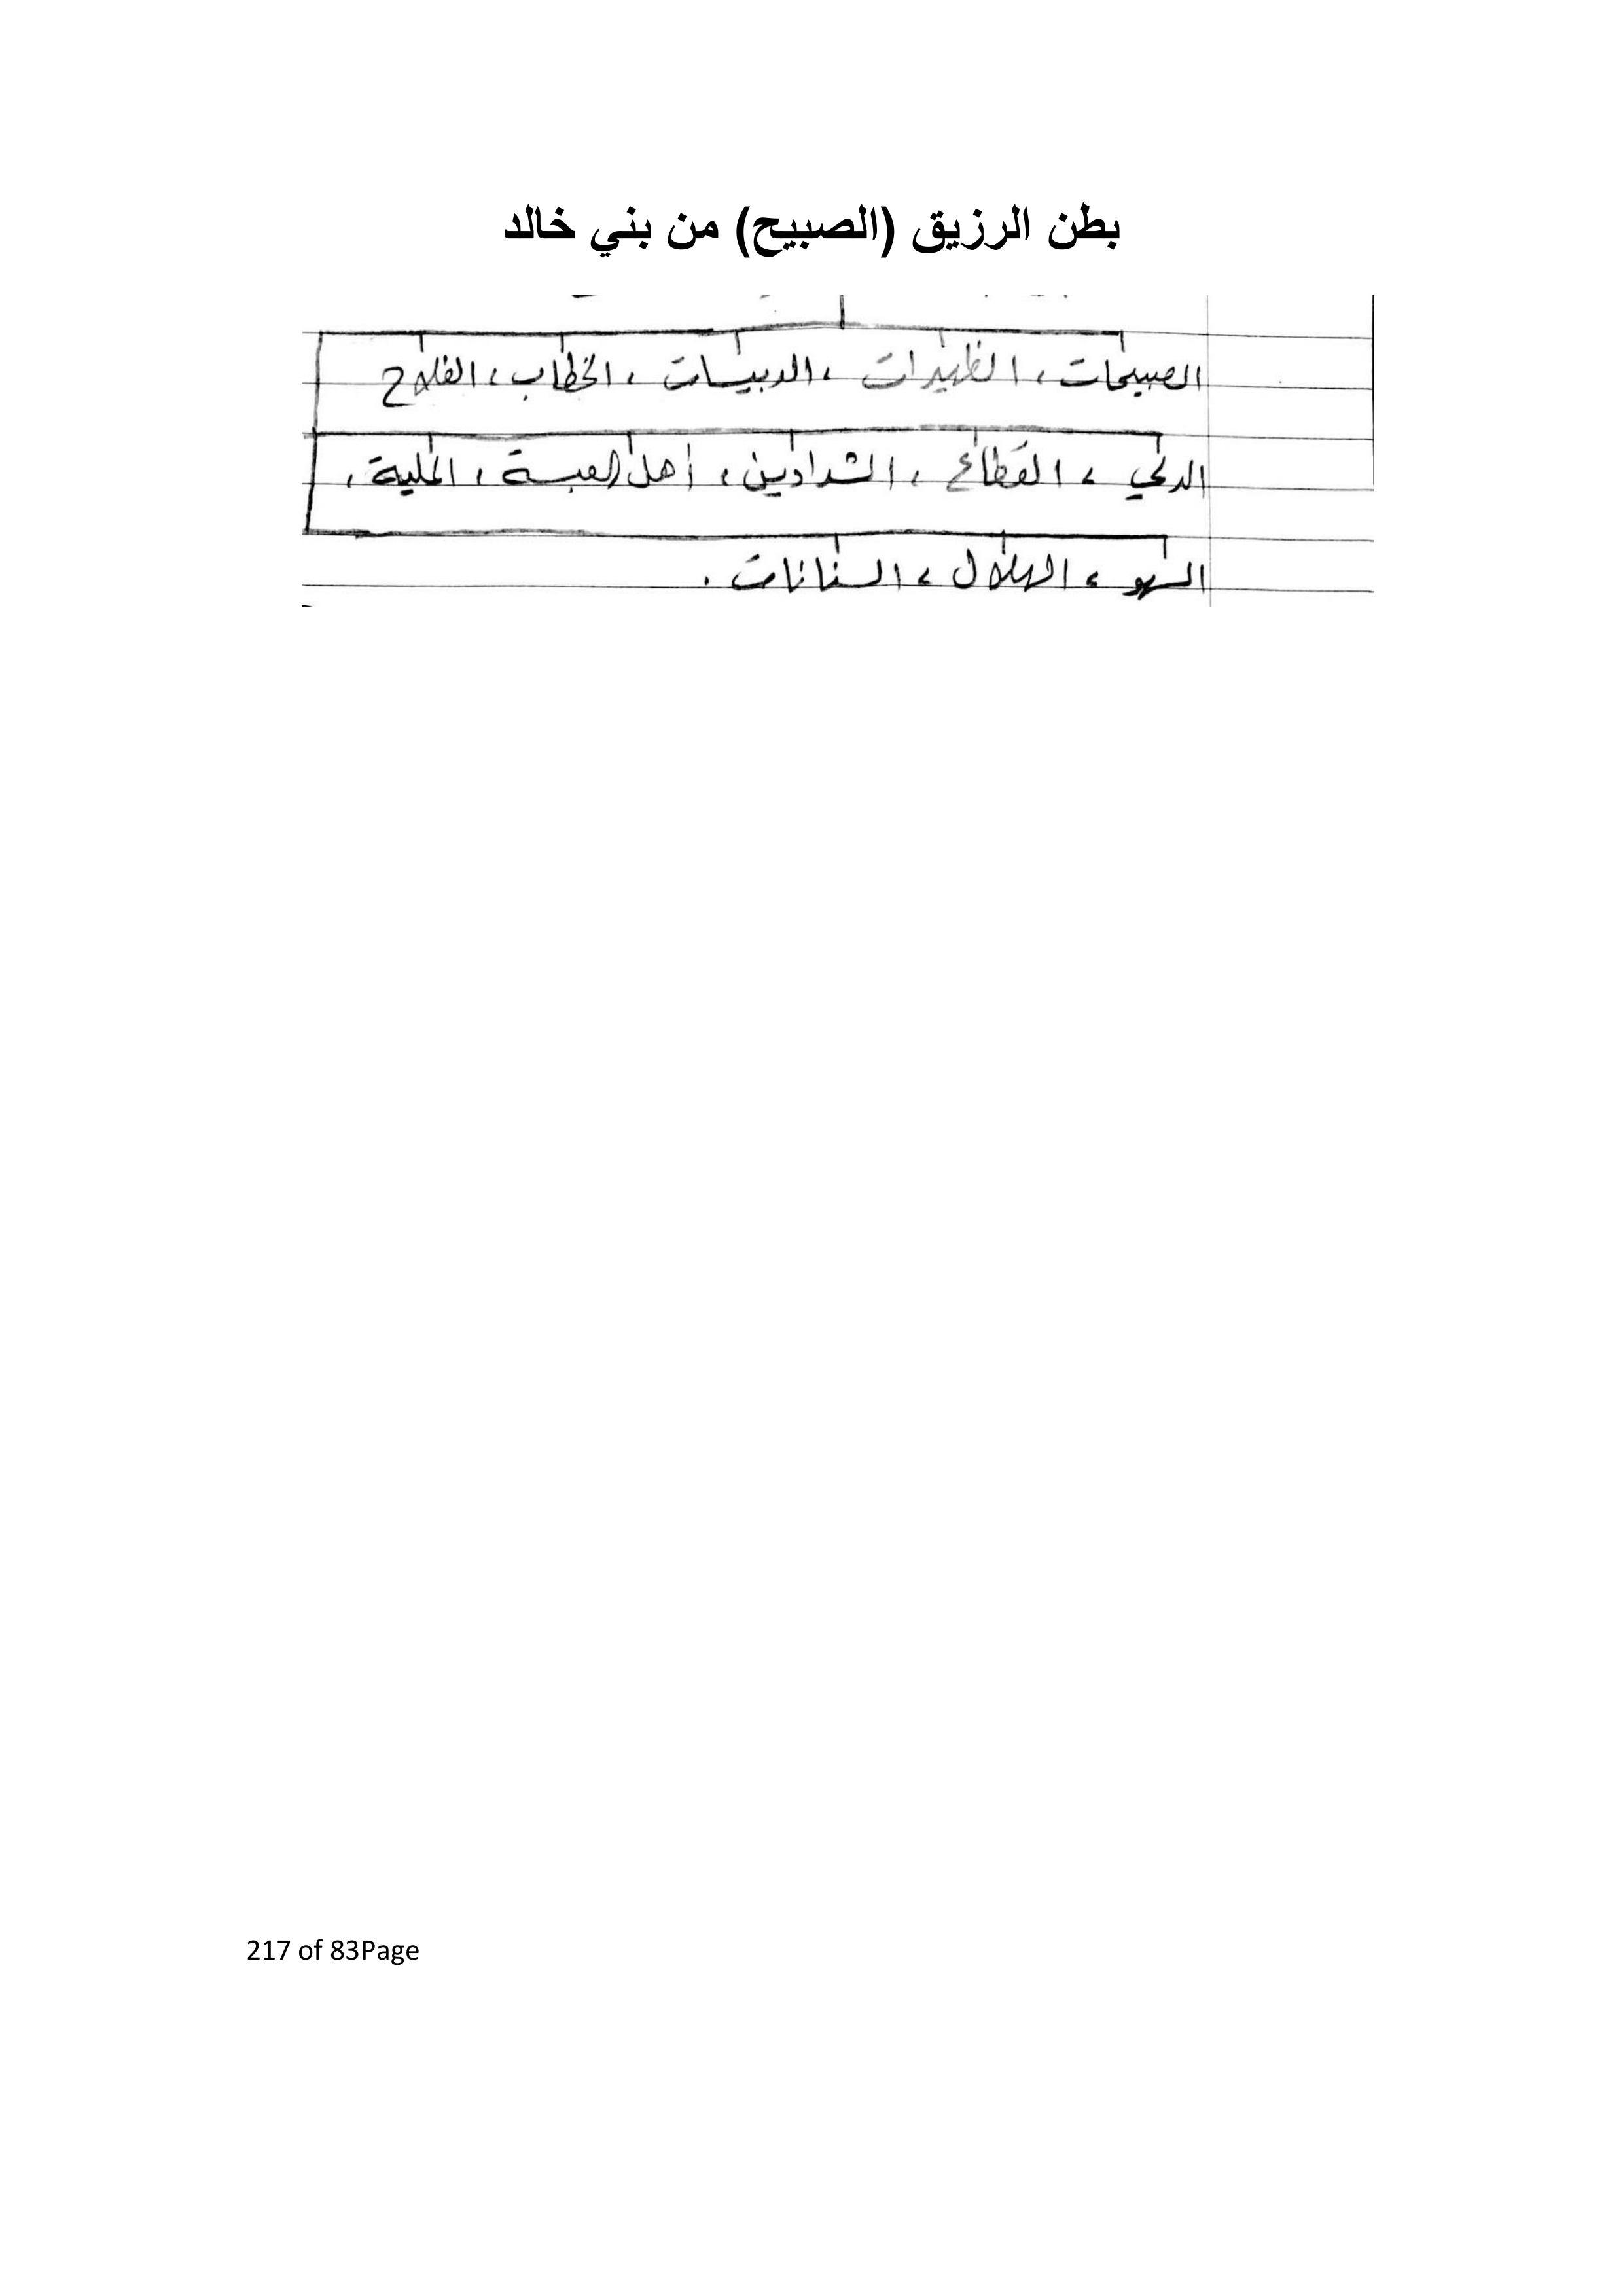 بطن الرزيق (الصبيح) من بني خالد
الصبيحات، الظهيرات، الدبيسات، الخطاب، الفلاح
، القطاع، الشدادين، أهل العبسة، الملية،
السهو، الهلال، السنانات.
217 of 83Page